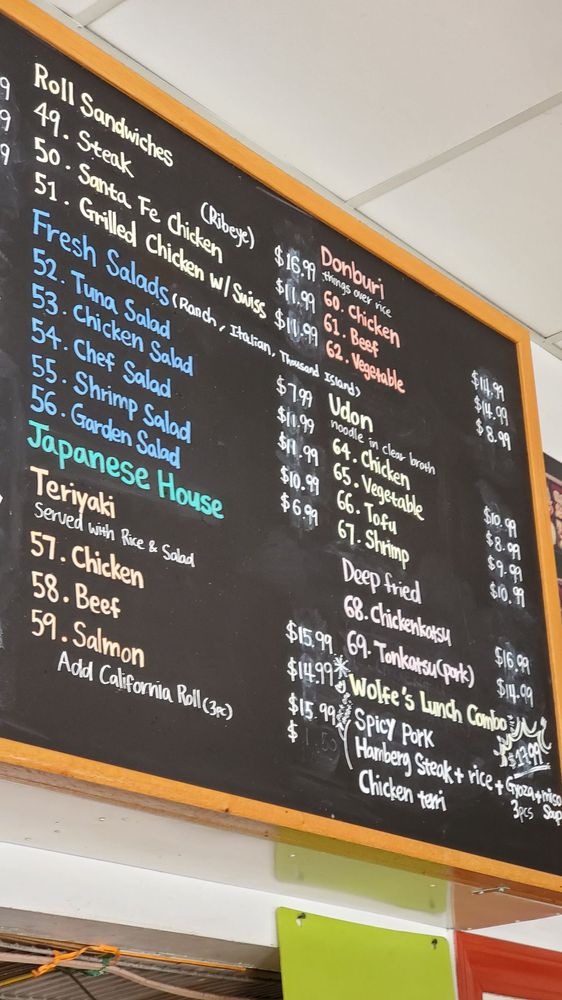 Roll Sandwiches
49. Steak (Ribeye) $16.99
50. Santa Fe Chicken $11.99
51. Grilled Chicken w/ Swiss $11.99
Fresh Salads (Ranch, Italian, Thousand Island)
52. Tuna Salad $7.99
53. Chicken Salad $11.99
54. Chef Salad $11.99
55. Shrimp Salad $10.99
56. Garden Salad $6.99
Japanese House
Teriyaki
Served with Rice & Salad
57. Chicken $15.99
58. Beef $14.99
59. Salmon $15.99
Add California Roll (3pc) $
Donburi
things over rice
60. Chicken $14.99
61. Beef $14.99
62. Vegetable $8.99
Udon
noodle in clear broth
64. Chicken $10.99
65. Vegetable $8.99
66. Tofu $9.99
67. Shrimp $10.99
Deep fried
68. Chickenkatsu $16.99
69. Tonkatsu (pork) $14.99
Wolfe's Lunch Combo
Spicy Pork
Hamberg Steak + rice + Gyoza + miso
3pcs Soup
Chicken terri